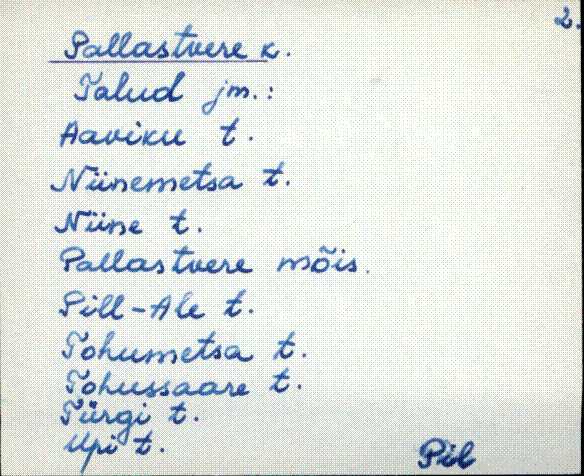 2.
Pallastvere k.
Talud jm.:
Aaviku t.
Niinemetsa t.
Niine t.
Pallastvere mõis.
Pill-Ale t.
Tohumetsa t.
Tohussaare t.
Türgi t.
Upi t.
Pil